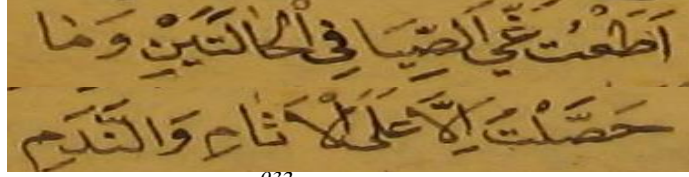 اَطَعْتُ غَيَّ الصِّبَا فِي الْحَالَتَيْنِ وَمَا
حَصَّلْتُ اِلَّا عَلَى الْاَثَامِ وَالنَّدَمِ